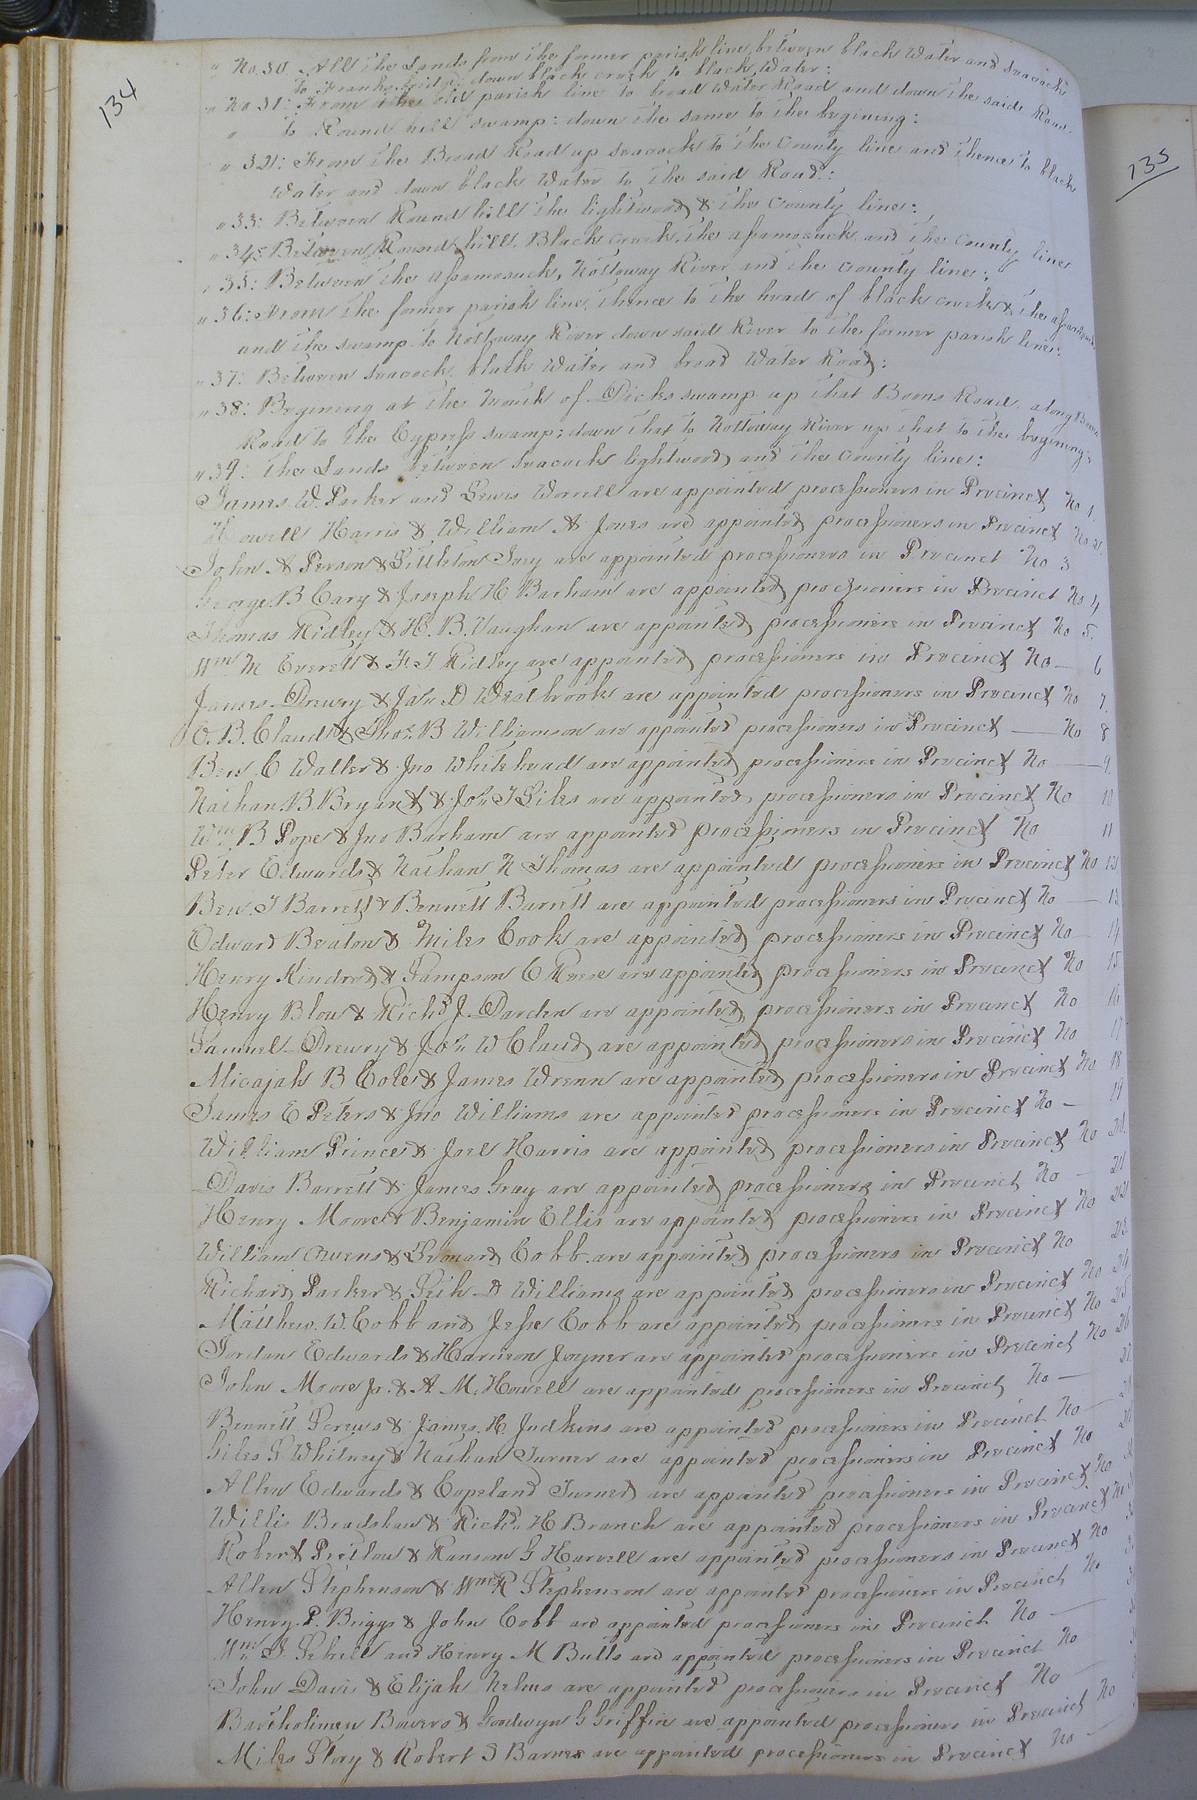 134
135
" No. 30 All the Lands from the former parish line, between black Water and Seacock
to Franks field down black creek to black Water:
" No 31: From the old parish line to broad Water Road and down the said Road
" to Round hill swamp: down the same to the begining:
" 32: From the Broad Road up Seacock to the County line and thence to black
Water and down black Water to the said Road:
" 33: Between Round hill the lightwood & the County line:
" 34: Between Round hill, Black creek, the assamosuck and the County line
" 35: Between the assamosuck, Nottoway River and the County line:
" 36: From the former parish line, thence to the head of black creek & the assamosuck
and the swamp to Nottoway River down said River to the former parish line:
" 37: Between Seacock, black Water and broad Water Road:
" 38: Begining at the Mouth of Dicks swamp up that Boons Road, along Boons
Road to the Cypress swamp: down that to Nottoway River up that to the begining:
" 39: the Lands between Seacock lightwood, and the County line:
James W. Parker and Lewis Worrell are appointed processioners in Precinct No 1.
Howell Harris & William A Jones are appointed processioners in Precinct No 2.
John A Person & Littleton Ivey are appointed processioners in Precinct No 3
George B Cary & Joseph H Barham are appointed processioners in Precinct No 4
Thomas Ridley & H. B. Vaughan are appointed processioners in Precinct No 5.
Wm M Everett & F. T Ridley are appointed processioners in Precinct No — 6
James Drewry & Jas. D Westbrook are appointed processioners in Precinct No 7
C. B. Claud & Thos. B Williamson are appointed processioners in Precinct — No 8
Ben C Walter & Jno Whitehead are appointed processioners in Precinct No — 9
Nathan B. Bryant & Jos. T Liles are appointed processioners in Precinct No 10
Wm. B Pope & Jno Barham are appointed processioners in Precinct No 11
Peter Edwards & Nathan N Thomas are appointed processioners in Precinct No 12
Ben. T Barrett & Bennett Barrett are appointed processioners in Precinct No — 13
Edward Beaton & Miles Cook are appointed processioners in Precinct No — 14
Henry Kindred & Sampson C Reese are appointed processioners in Precinct No 15
Henry Blow & Richd J. Darden are appointed processioners in Precinct No 16
Samuel Drewry & Jos. W Claud are appointed processioners in Precinct No 17
Micajah B Cole & James Wrenn are appointed processioners in Precinct No 18
James E Peters & Jno Williams are appointed processioners in Precinct No — 19
William Prince & Joel Harris are appointed processioners in Precinct No 20
Davis Barrett & James Gray are appointed processioners in Precinct No — 21
Henry Moore & Benjamin Ellis are appointed processioners in Precinct No 22
William Owens & Leonard Cobb are appointed processioners in Precinct No 23
Richard Parker & Seth A Williams are appointed processioners in Precinct No 24
Matthew. W. Cobb and Jesse Cobb are appointed processioners in Precinct No 25
Jordan Edwards & Harrison Joyner are appointed processioners in Precinct No 26
John Moore Jr. & A. M. Howell are appointed processioners in Precinct No — 27
Bennett Screws & James. H. Judkins are appointed processioners in Precinct No
Giles G Whitney & Nathan Turner are appointed processioners in Precinct No
Allen Edwards & Copeland Turner are appointed processioners in Precinct No
Willis Bradshaw & Richd. H Branch are appointed processioners in Precinct No
Robert Pretlow & Ransom G Harvell are appointed processioners in Precinct No
Allen Stephenson & Wm R Stephenson are appointed processioners in Precinct No
Henry. P. Briggs & John Cobb are appointed processioners in Precinct No —
Wm. D. Sebrell and Henry M Butts are appointed processioners in Precinct No
John Davis & Elijah Nelms are appointed processioners in Precinct No —
Bartholimew Bowers & Goodwyn G Griffin are appointed processioners in Precinct No
Miles Story & Robert S Barnes are appointed processioners in Precinct No —